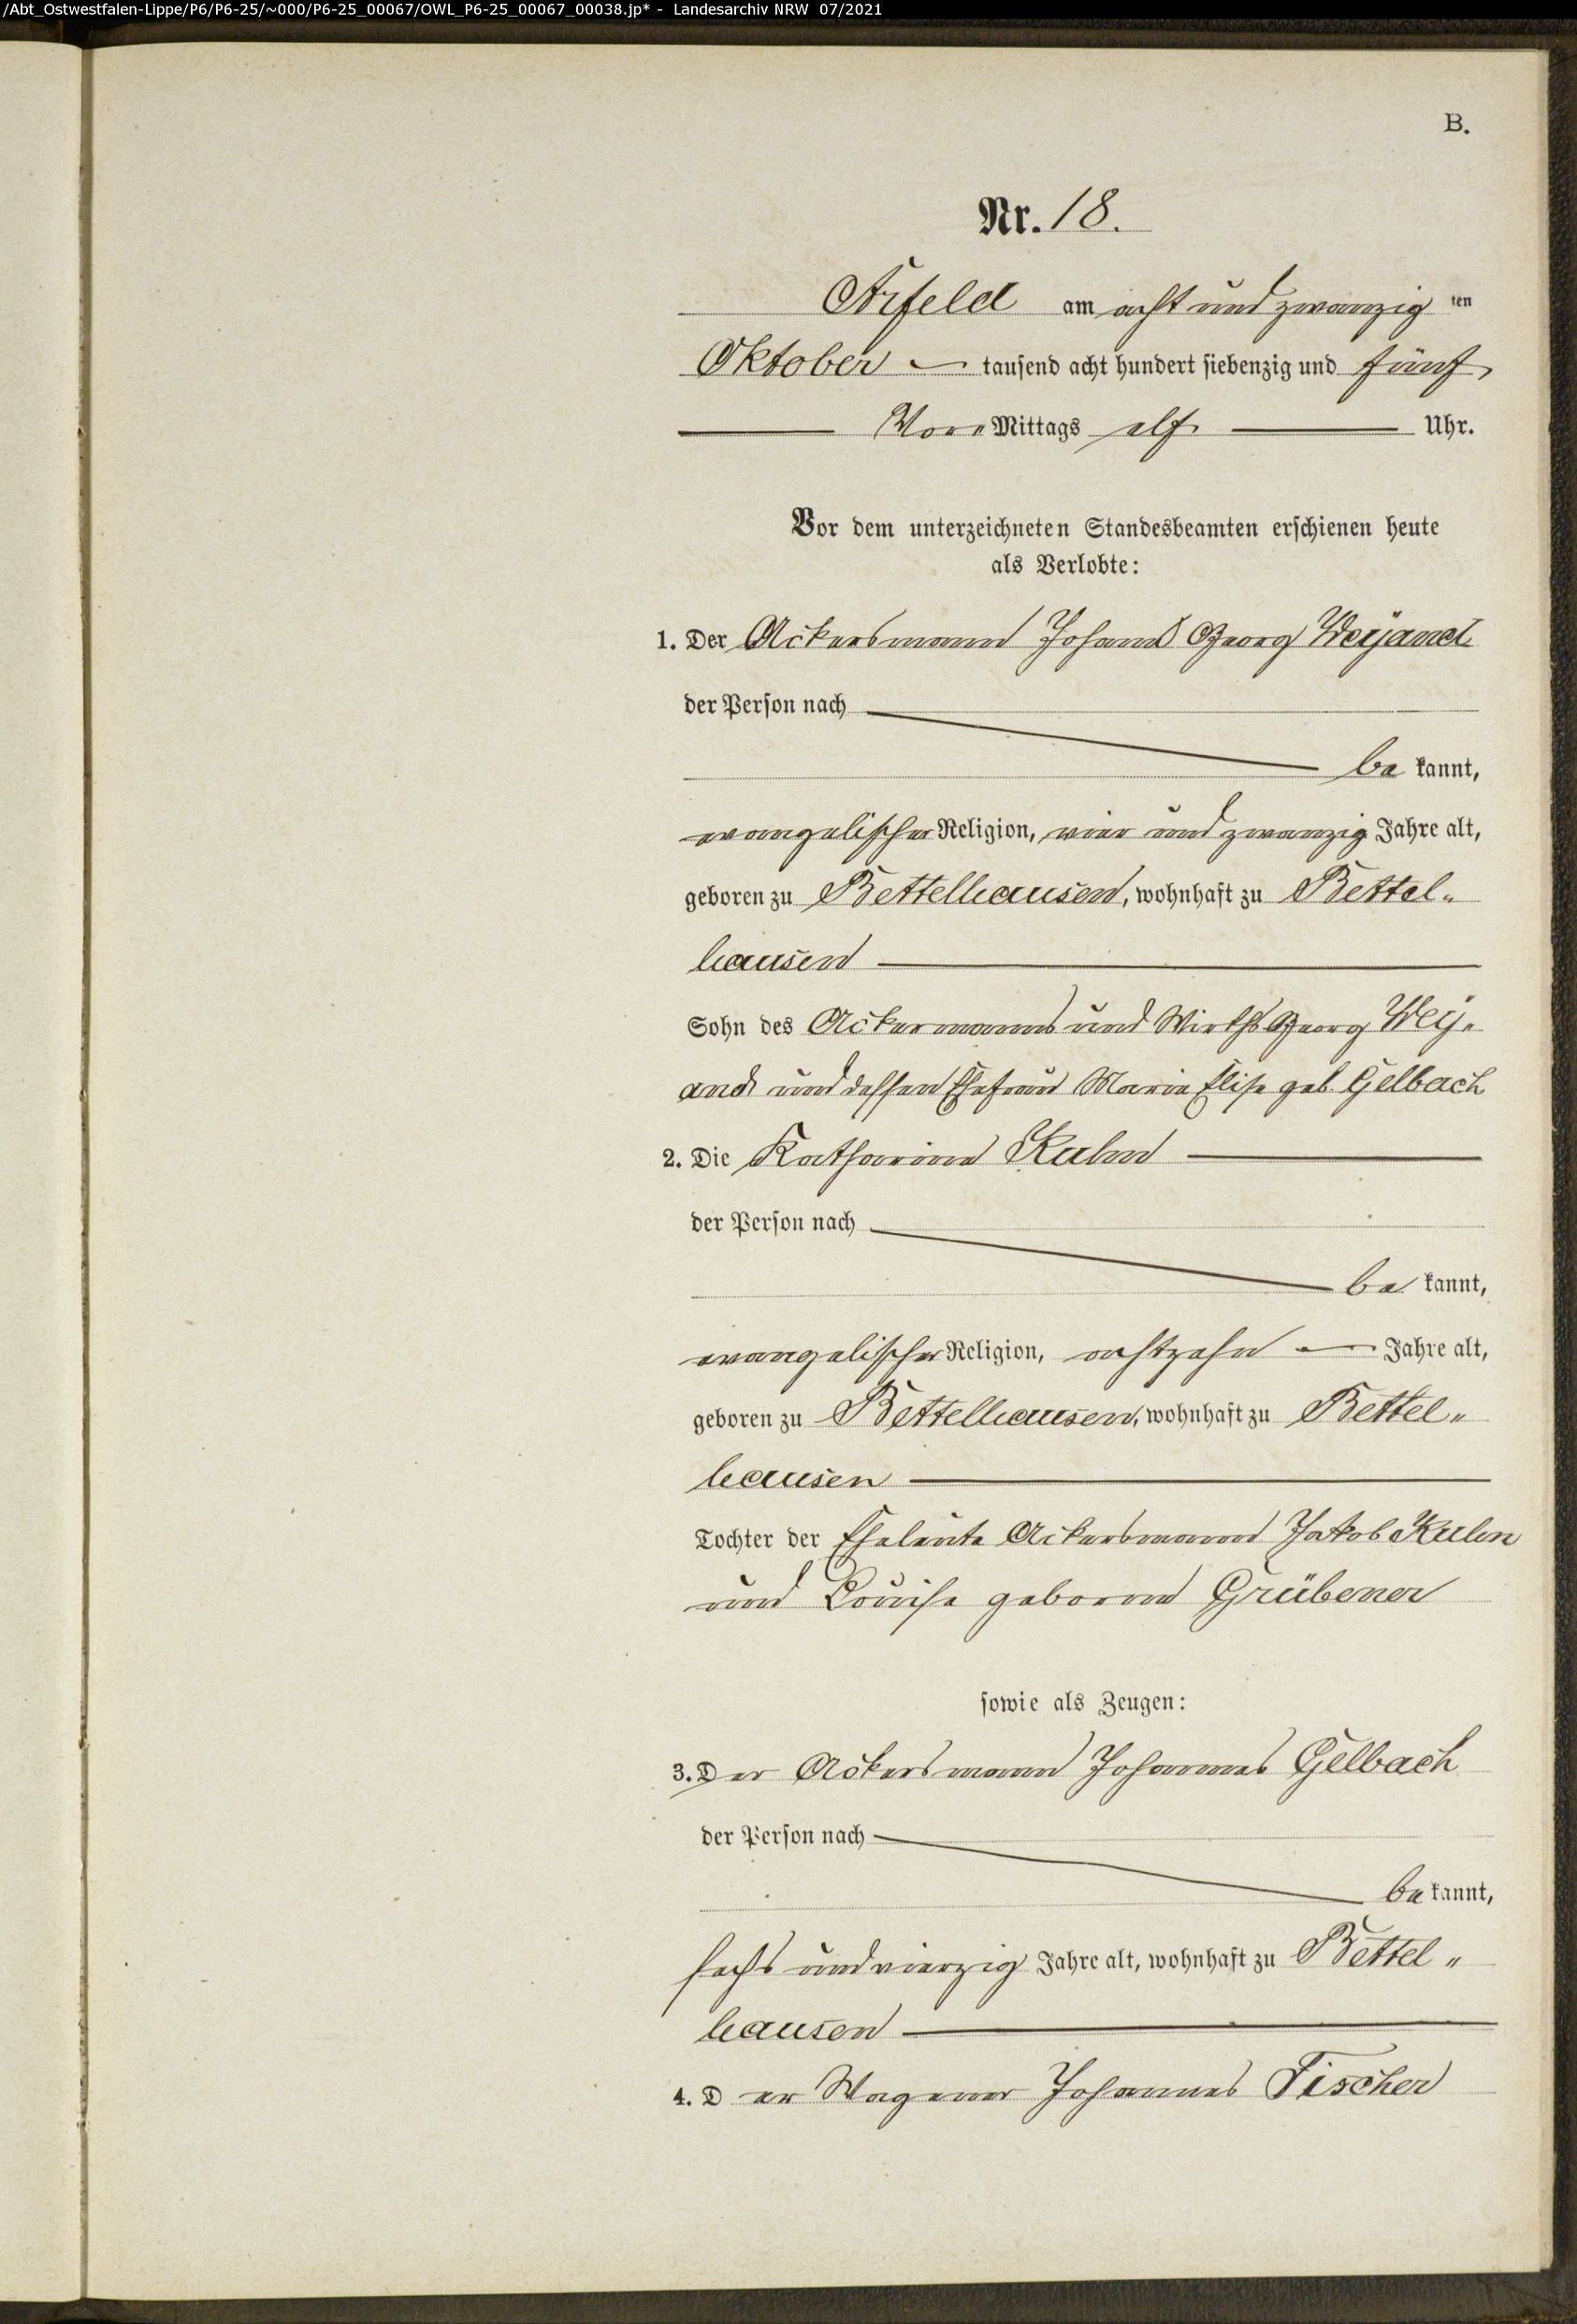 /Abt_Ostwestfalen-Lippe/P6/P6-25/~000/P6-25_00067/OWL_P6-25_00067_00038.jp* - Landesarchiv NRW 07/2021
B.
Nr. 18.
Arfeld am acht und zwanzig ten
Oktober — tausend acht hundert siebenzig und fünf,
Vor-Mittags elf Uhr.
Vor dem unterzeichneten Standesbeamten erschienen heute
als Verlobte:
1. Der Ackersmann Johann Georg Weÿand
der Person nach
be kannt,
evangelischer Religion, vier und zwanzig Jahre alt,
geboren zu Bettelhausen, wohnhaft zu Bettel-
hausen
Sohn des Ackermanns und Wirths Georg Weÿ-
and und dessen Ehefrau Marie Elise geb. Gelbach
2. Die Katharine Kuhn
der Person nach
be kannt,
evangelischer Religion, achtzehn — Jahre alt,
geboren zu Bettelhausen, wohnhaft zu Bettel-
hausen
Tochter der Eheleute Ackersmann Jakob Kuhn
und Louise geborne Grübener
sowie als Zeugen:
3. Der Ackersmann Johannes Gelbach
der Person nach
be kannt,
sechs und vierzig Jahre alt, wohnhaft zu Bettel-
hausen
4. D er Wagener Johannes Fischer